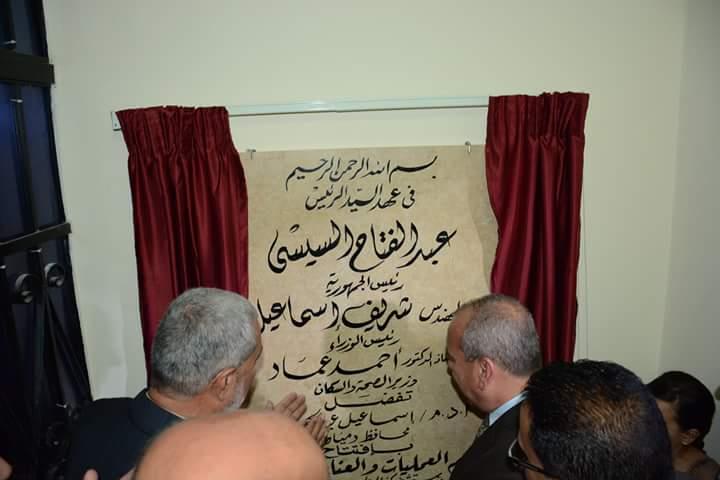 بسم الله الرحمن الرحيم
فى عهد السيد الرئيس
عبد الفتاح السيسى
رئيس الجمهورية
المهندس شريف إسماعيل
رئيس الوزراء
أحمد عماد
وزير الصحة والسكان
تفضل
ا.د.م/ إسماعيل
محافظ دمياط
بافتتاح
العمليات و